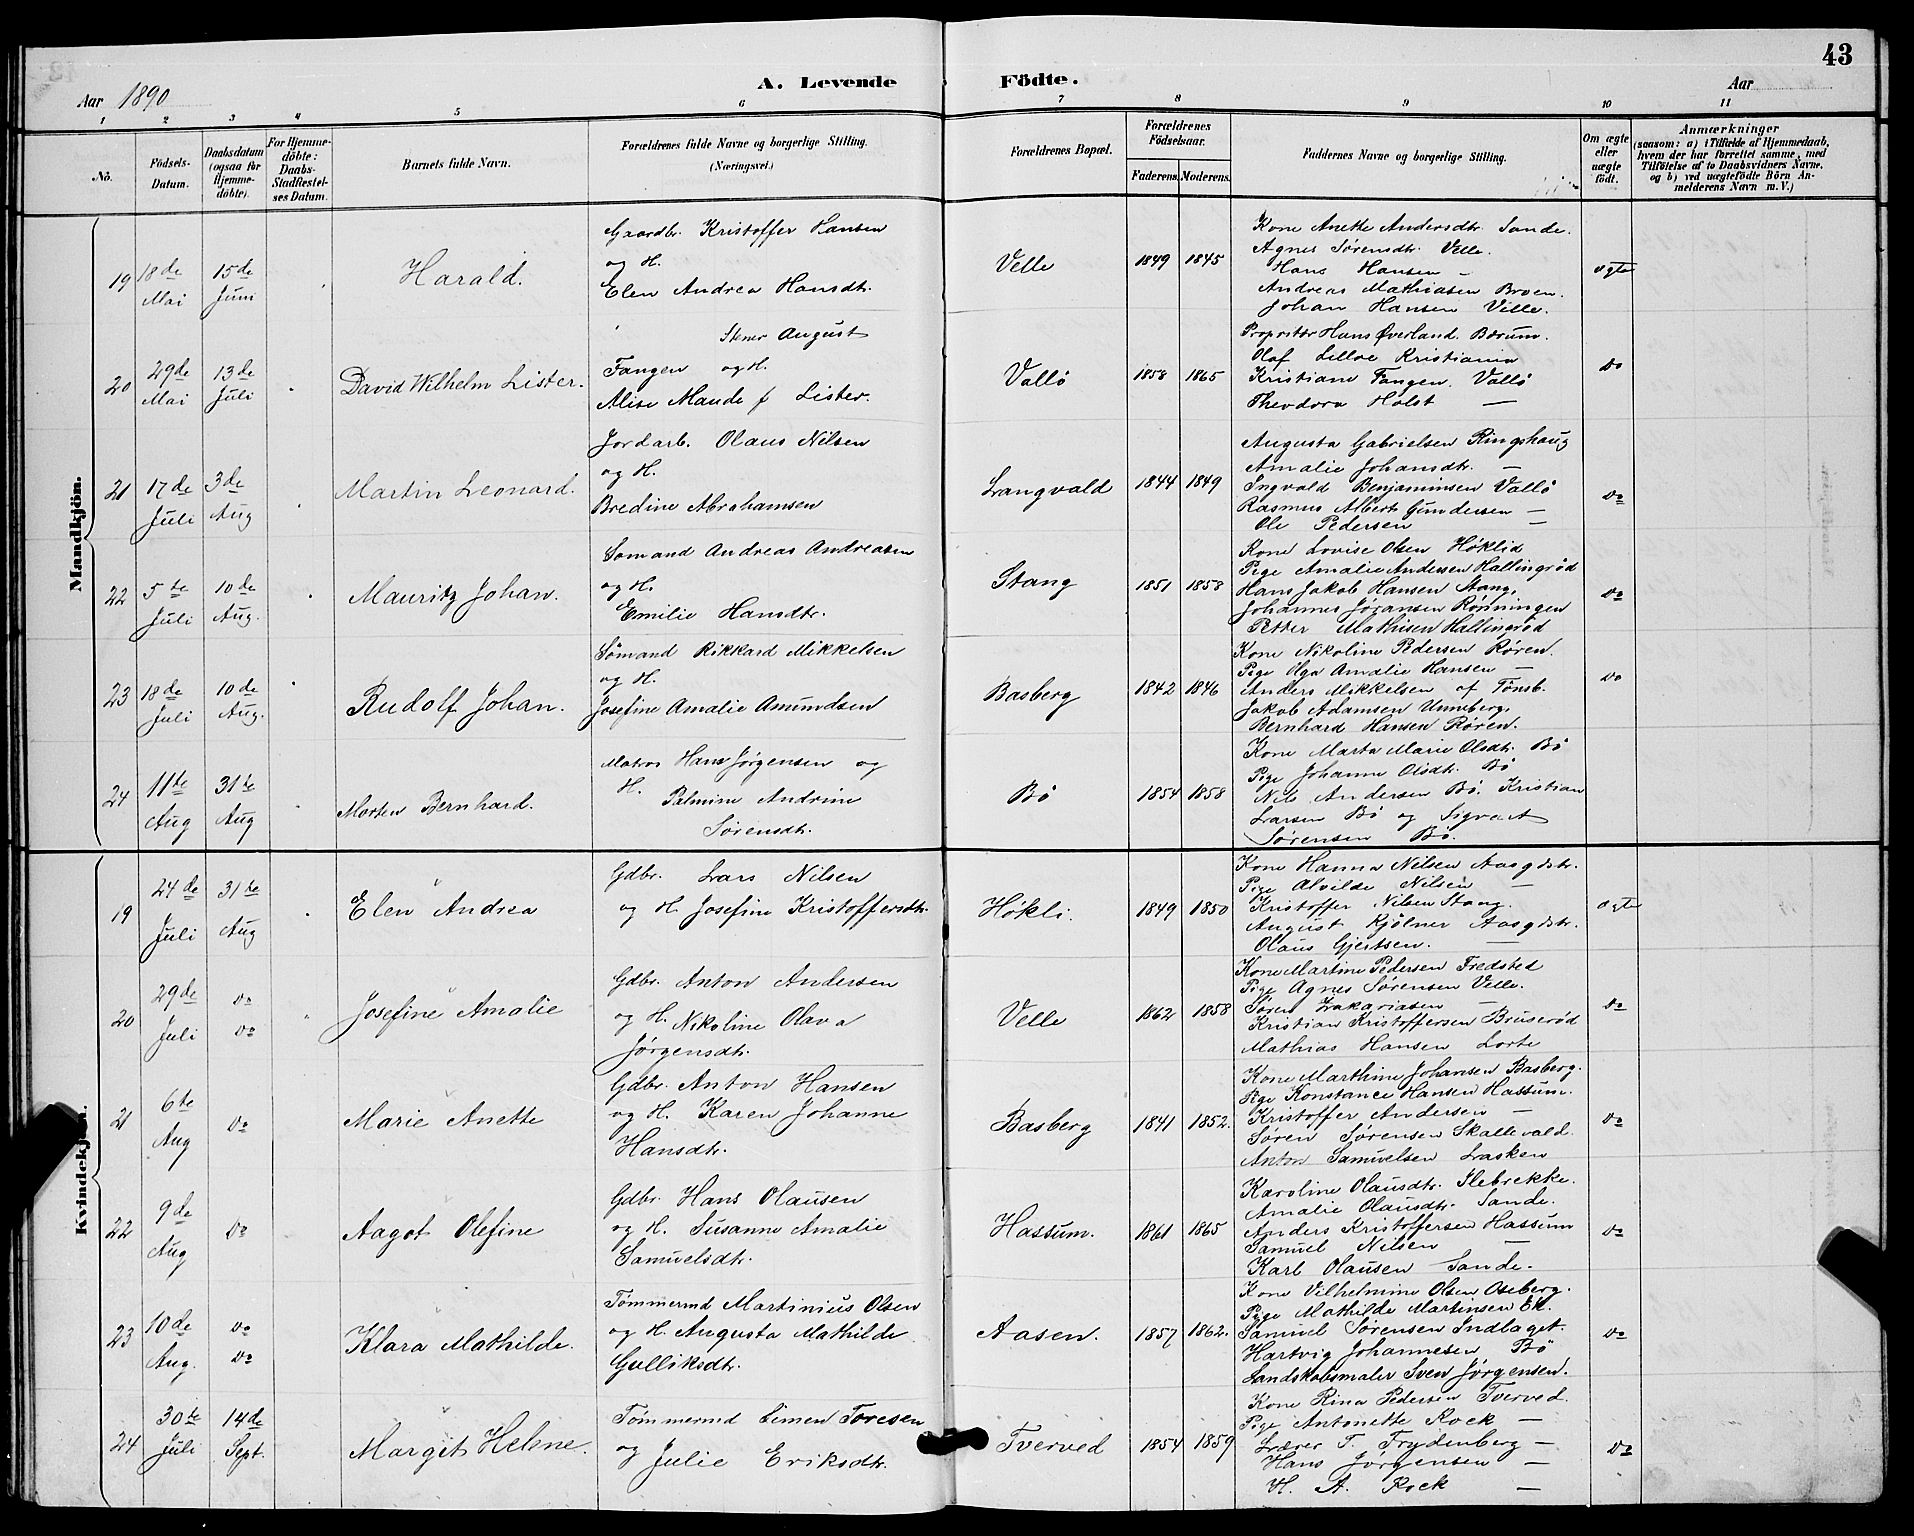 43
Aar 1890
A. Levende Födte.
Aar
1 2 3 4 5 6 7 8 9 10 11
No.
Födsels-Datum.
Daabsdatum (ogsaa for Hjemmedöbte).
For Hjemmedöbte: Daabs-Stadfæstelses Datum.
Barnets fulde Navn.
Forældrenes fulde Navne og borgerlige Stilling. (Næringsvei.)
Forældrenes Bopæl.
Forældrenes Födselsaar.
Faderens. Moderens.
Faddernes Navne og borgerlige Stilling.
Om ægte eller uægte født.
Anmærkninger
(saasom: a) i Tilfælde af Hjemmedaab, hvem der har forrettet samme, med Tilföielse af to Daabsvidners Navne, og b) ved uægtefödte Börn Anmelderens Navn m. V.)
Mandkjön.
19 18de Mai 15de Juni
Harald.
Gaardbr. Kristoffer Hansen
og H.
Elen Andrea Hansdtr.
Velle 1849 1845
Kone Anette Andersdtr. Sande.
Agnes Sørensdtr. Velle.
Hans Hansen —
Andreas Mathiasen Broen.
Johan Hansen Velle.
ægte
20 29de Mai 13de Juli
David Wilhelm Lister.
Stener August
Fangen og H.
Alise Maude f Lister.
Vallö 1858 1865
Proprietær Hans Øverland. Bærum.
Olaf Lilloe Kristiania
Kristiane Fangen. Vallö
Theodora Holst —
do
21 17de Juli 3de Aug
Martin Leonard.
Jordarb. Olaus Nilsen
og H.
Bredine Abrahamsen
Langvald 1844 1849
Augusta Gabrielsen Ringshaug
Amalie Johansdtr. —
Ingvald Benjaminsen Vallö
Rasmus Albert Gundersen —
Ole Pedersen —
do
22 5te Juli 10de Aug.
Mauritz Johan.
Sømand Andreas Andreasen
og H.
Emilie Hansdtr.
Stang 1851 1858
Kone Lovise Olsen Høklid
Pige Amalie Andersen Hallingrød
Hans Jakob Hansen Stang,
Johannes Jøransen Rønningen
Petter Mathisen Hallingrød
do
23 18de Juli 10de Aug.
Rudolf Johan.
Sömand Rikkard Mikkelsen
og H.
Josefine Amalie Amundsen
Basberg 1842 1846
Kone Nikoline Pedersen Røren.
Pige Olga Amalie Hansen —
Anders Mikkelsen af Tønsb.
Jakob Adamsen Unneberg,
Bernhard Hansen Røren.
do
24 11te Aug 31te Aug
Morten Bernhard.
Matros Hans Jørgensen og
H. Palmine Andrine
Sørensdtr.
Bö 1854 1858
Kone Marta Marie Olsdtr. Bö
Pige Johanne Olsdtr. Bö
Nils Andersen Bö, Kristian
Larsen Bö og Sigvart
Sørensen Bö.
Kvindekjön.
19 24de Juli 31te Aug
Elen Andrea
Gdbr. Lars Nilsen
og H. Josefine Kristoffersdtr.
Høkli. 1849 1850
Kone Hanna Nilsen Aasgdstr.
Pige Alvilde Nilsen —
Kristoffer Nilsen Stang.
August Kjölner Aasgdstr.
Olaus Gjertsen. —
ægte
20 29de Juli do do
Josefine Amalie
Gdbr. Anton Andersen
og H. Nikoline Olava
Jørgensdtr.
Velle 1862 1858
Kone Martine Pedersen Fredsted
Pige Agnes Sørensen Velle.
Søren Zakariasen —
Kristian Kristoffersen Bruserød
Mathias Hansen Lorte
do
21 6te Aug do
Marie Anette
Gdbr. Anton Hansen
og H. Karen Johanne
Hansdtr.
Basberg 1841 1852.
Kone Marthine Johansen Basberg.
Pige Konstance Hansen Hassum.
Kristoffer Andersen —
Søren Sørensen Skallevald.
Anton Samuelsen Lasken
do
22 9de Aug do
Aagot Olefine
Gdbr. Hans Olausen
og H. Susanne Amalie
Samuelsdtr.
Hassum. 1861 1865
Karoline Olausdtr. Ilebrekke.
Amalie Olausdtr. Sande.
Anders Kristoffersen Hassum
Samuel Nilsen —
Karl Olausen Sande.
do
23 10de Aug. do do
Klara Mathilde.
Tømmermd Martinius Olsen
og H. Augusta Mathilde
Gulliksdtr.
Aasen. 1857 1862.
Kone Vilhelmine Olsen Oseberg.
Pige Mathilde Martinsen Ek.
Samuel Sørensen Indlaget.
Hartvig Johannesen Bö
Landskabsmaler Sven Jørgensen.
do
24 30te Juli 14de Sept.
Margit Helene.
Tømmermd Simen Toresen
og Julie Eriksdtr.
Tverved 1854 1859
Kone Rina Pedersen Tverved.
Pige Antonette Rock —
Lærer T. Frydenberg —
Hans Jørgensen —
H. A. Rock —
do